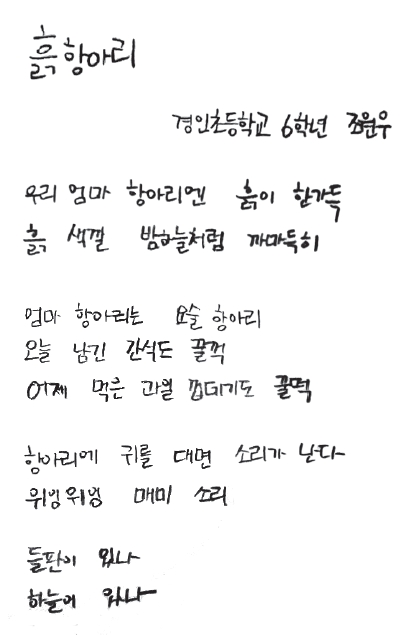 흙항아리
경인초등학교 6학년 조원우
우리 엄마 항아리엔 흙이 한가득
흙 색깔 밤하늘처럼 까마득히
엄마 항아리는 요술 항아리
오늘 남긴 간식도 꿀꺽
어제 먹은 과일 껍데기도 꿀떡
항아리에 귀를 대면 소리가 난다
위잉위잉 매미 소리
들판이 왔나
하늘이 왔나